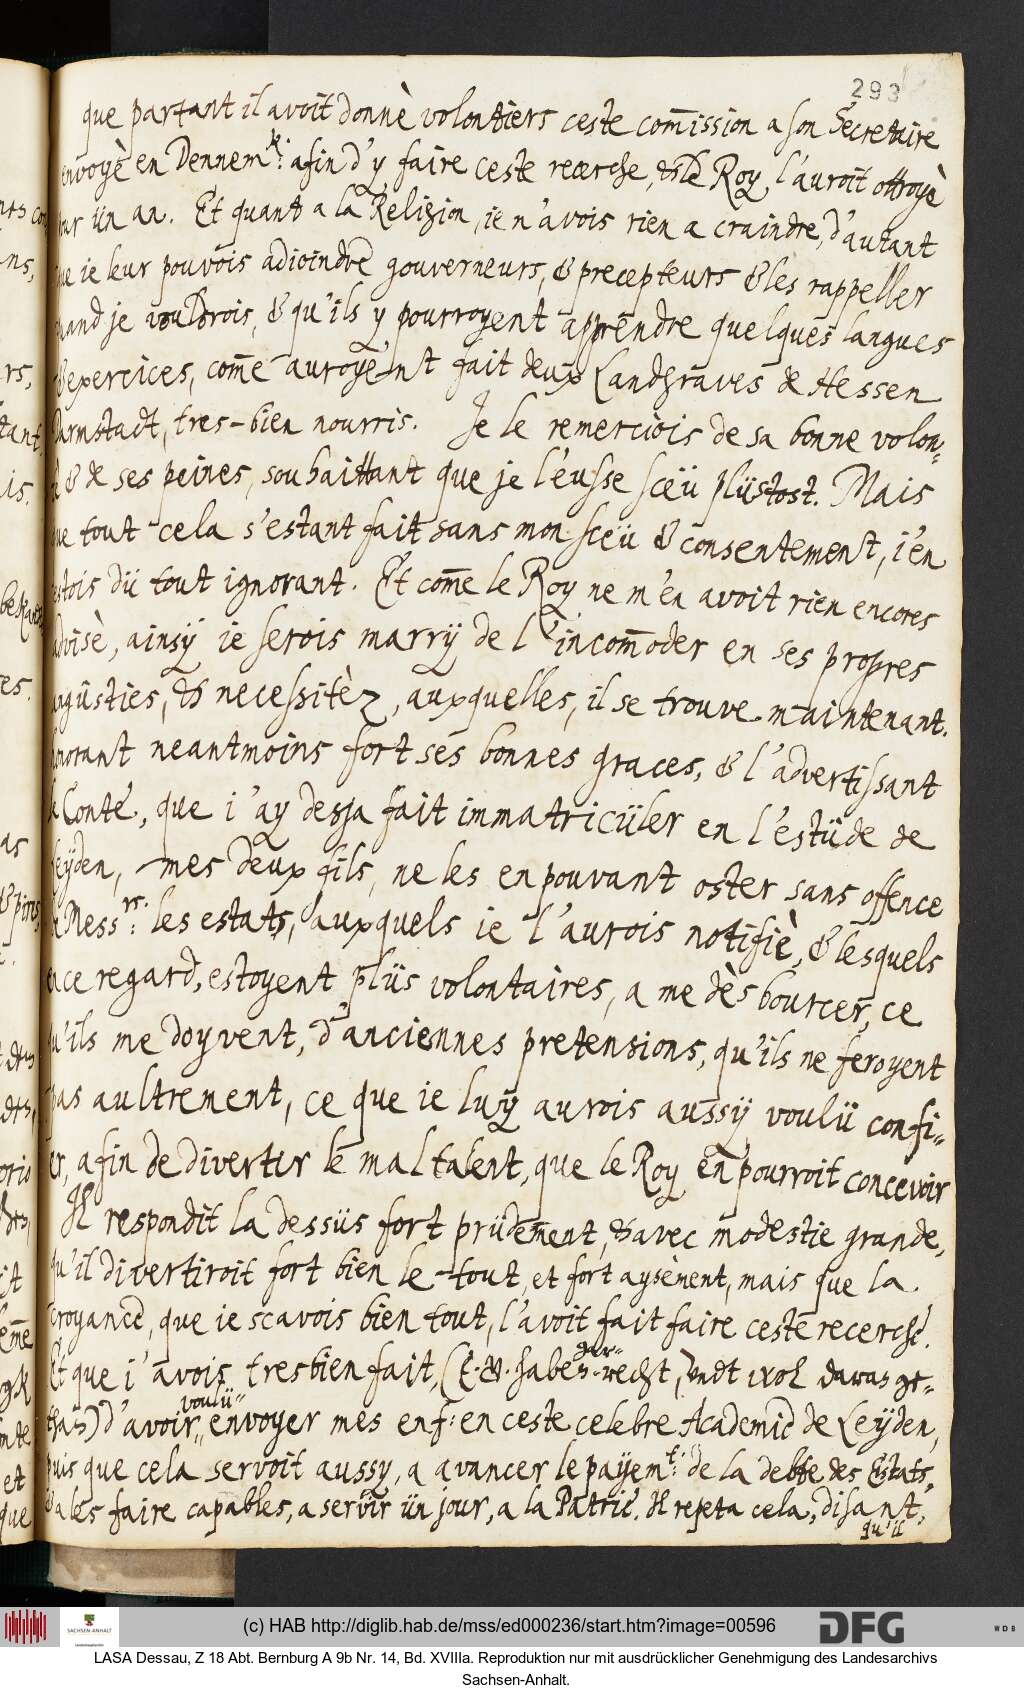 293
que partant il avoit donnè volontiers ceste com̅ission a son Secretaire
envoyè en Dennem.k: afin d'y faire ceste recerche, & le Roy l'auroit ottroyè
pour ün an. Et quant a la Religion, ie n'avois rien a craindre, d'autant
que ie leur pouvois adioindre gouverneurs, & precepteurs & les rappeller
quand je vouldrois, & qu'ils y pourroyent apprendre quelques langues
& exercices, com̅e auroyent fait deux Landgraves de Hessen
Darmstadt, tres-bien nourris. Je le remerciois de sa bonne volon-
tè & de ses peines, souhaittant que je l'eusse sceü plüstost. Mais
que tout cela s'estant fait sans mon sceü & consentement, i'en
estois dü tout ignorant. Et com̅e le Roy ne m'en avoit rien encores
advisè, ainsÿ ie serois marrÿ de l'incom̅oder en ses propres
angüsties, & necessitèz, auxquelles, il se trouve maintenant.
honorant neantmoins fort ses bonnes graces, & l'advertissant
le Conte, que i'ay desja fait immatricüler en l'estüde de
Leÿden, mes deux fils, ne les en pouvant oster sans offence
de Mess.rs: les estats, auxquels ie l'aurois notifiè, & lesquels
en ce regard, estoyent plüs volontaires, a me dèsbourcer, ce
qu'ils me doyvent, d'anciennes pretensions, qu'ils ne feroyent
pas aultrement, ce que ie luÿ aurois aussÿ voulü confi-
er, afin de divertir le maltalent, que le Roy en pourroit concevoir
Il respondit la dessüs fort prüdem̅ent, & avec modestie grande,
qu'il divertiroit fort bien le tout, et fort aysèment, mais que la
croyance, que ie scavois bien tout, l'avoit fait faire ceste recerche.
Et que i'avois tresbien fait, (E. M. haben gar recht, vndt wol daran ge-
than) d'avoir voulü envoyer mes enf: en ceste celebre Academie de Leÿden,
puis que cela servoit aussy, a avancer le payem.t: de la debte des Estats,
& a les faire capables, a servir ün jour, a la Patrie. Il repeta cela, disant,
qu'il
(c) HAB http://diglib.hab.de/mss/ed000236/start.htm?image=00596
SACHSEN-ANHALT
DFG
WDB
LASA Dessau, Z 18 Abt. Bernburg A 9b Nr. 14, Bd. XVIIIa. Reproduktion nur mit ausdrücklicher Genehmigung des Landesarchivs
Sachsen-Anhalt.